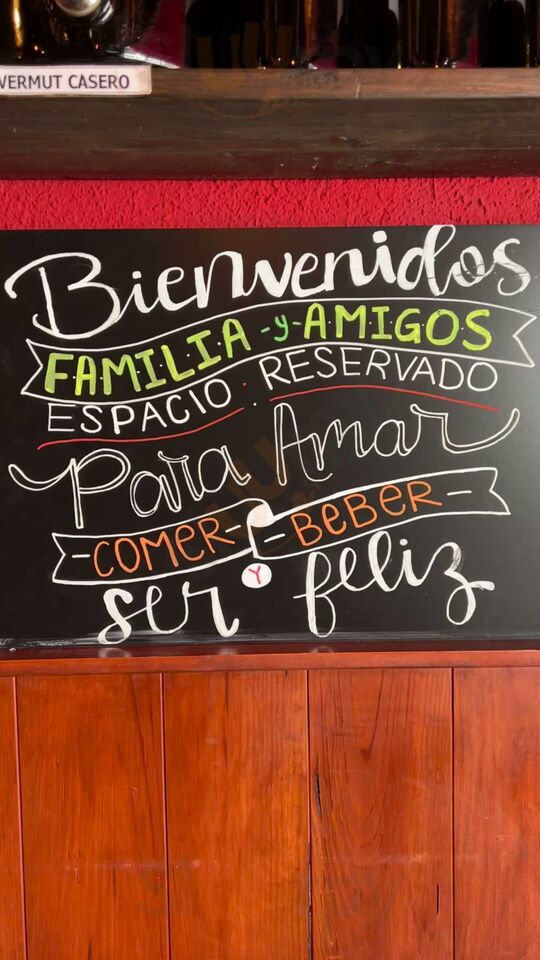 VERMUT CASERO
Bienvenidos
FAMILIA -y- AMIGOS
ESPACIO : RESERVADO
Para Amar
-COMER- -BEBER-
Y
ser feliz